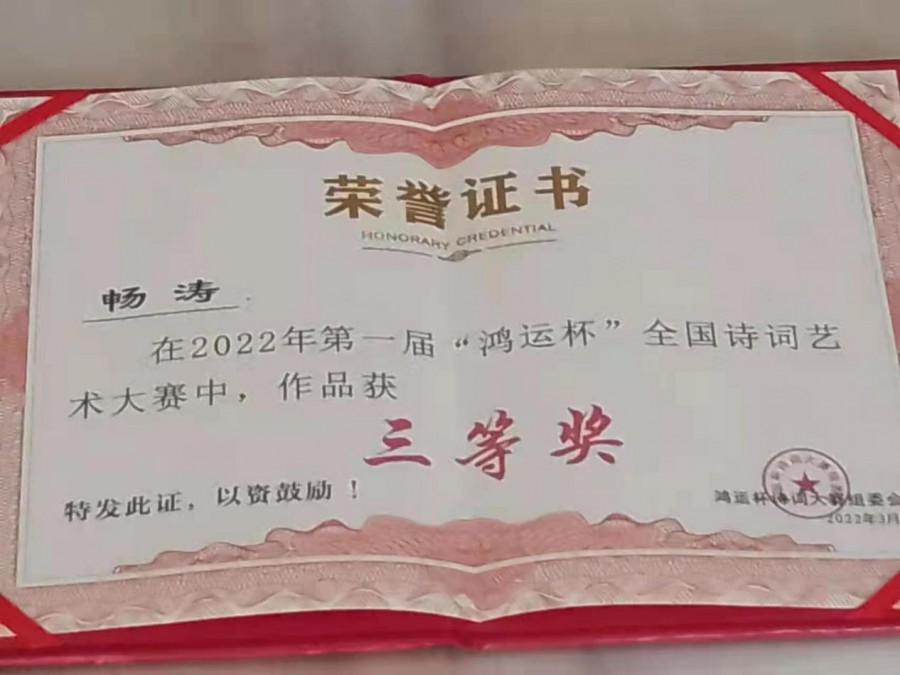 荣誉证书
HONORARY CREDENTIAL
畅涛
在2022年第一届“鸿运杯”全国诗词艺
术大赛中，作品获
三等奖
特发此证，以资鼓励！
鸿运杯诗词大赛组委会
2022年3月